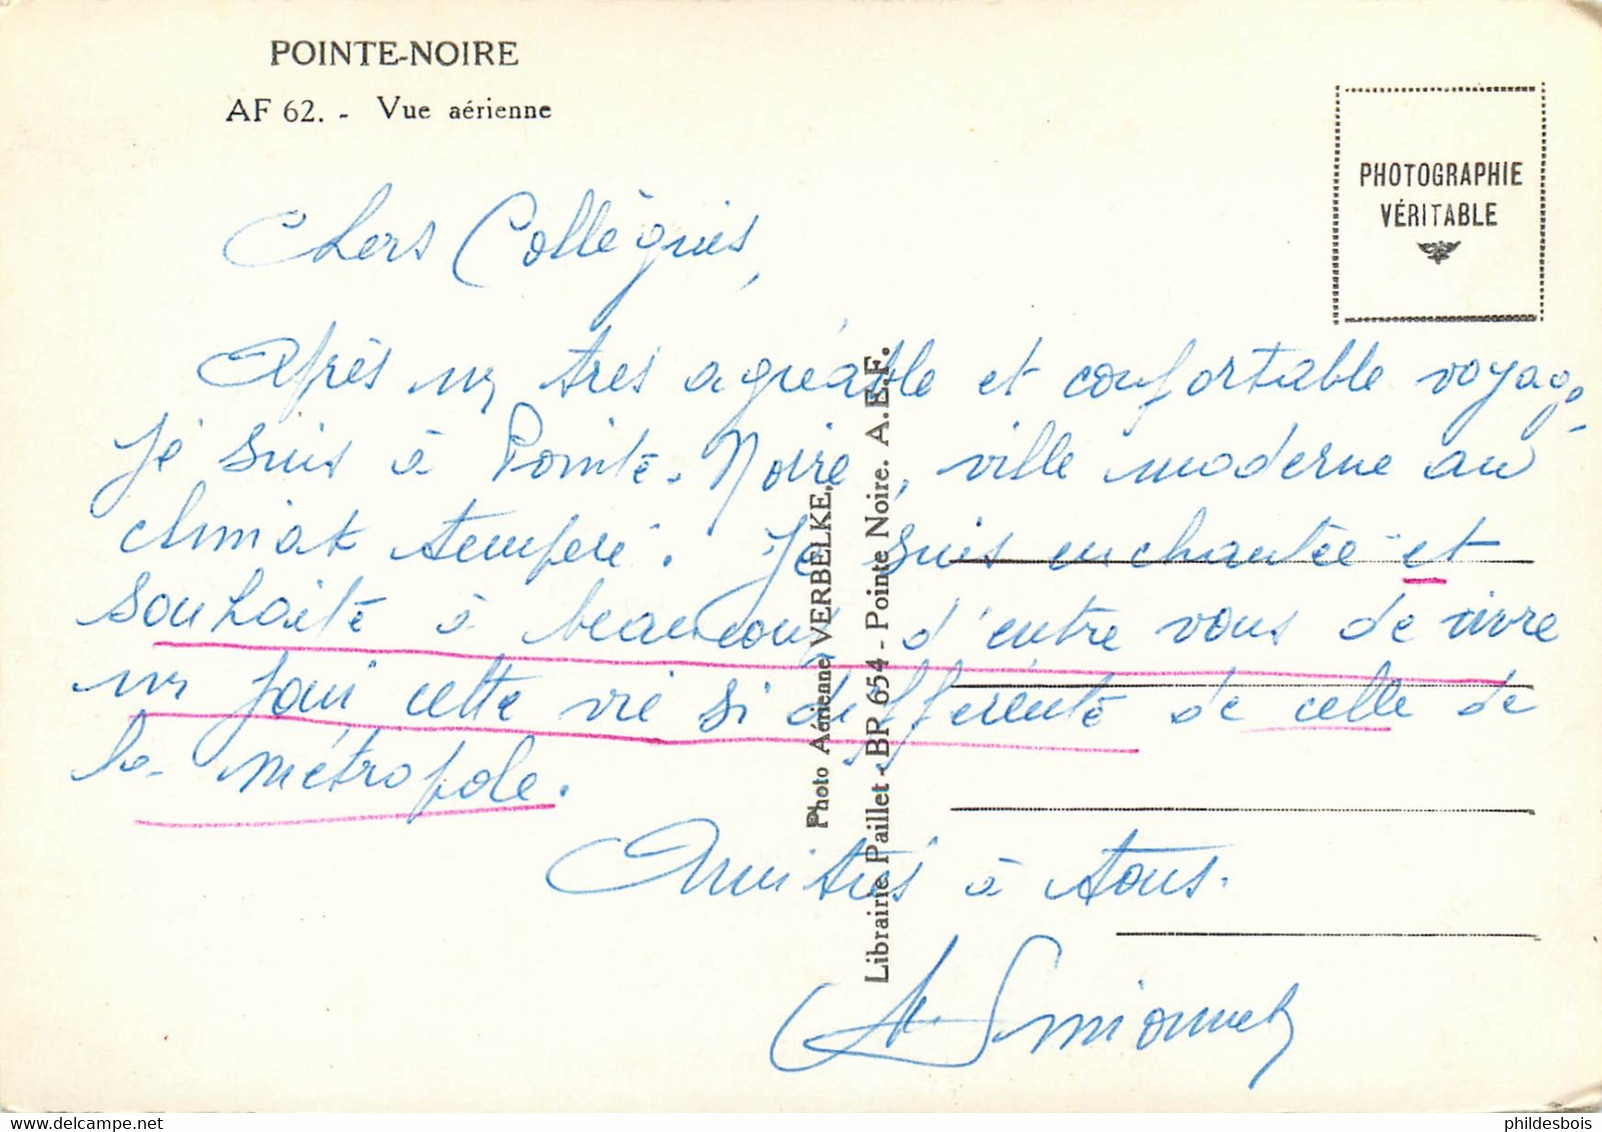 POINTE-NOIRE
AF 62. - Vue aérienne
PHOTOGRAPHIE
VÉRITABLE
Chers Collègues,
Après un très agréable et confortable voyage
je suis à Pointe-Noire, ville moderne au
climat tempéré. Je suis enchantée et
souhaite à beaucoup d'entre vous de vivre
un jour cette vie si différente de celle de
la métropole.
Amitiés à tous.
Photo Aérienne VERBELKE,
Librairie Paillet - BP 654 - Pointe Noire. A.E.F.
delcampe.net
phildesbois